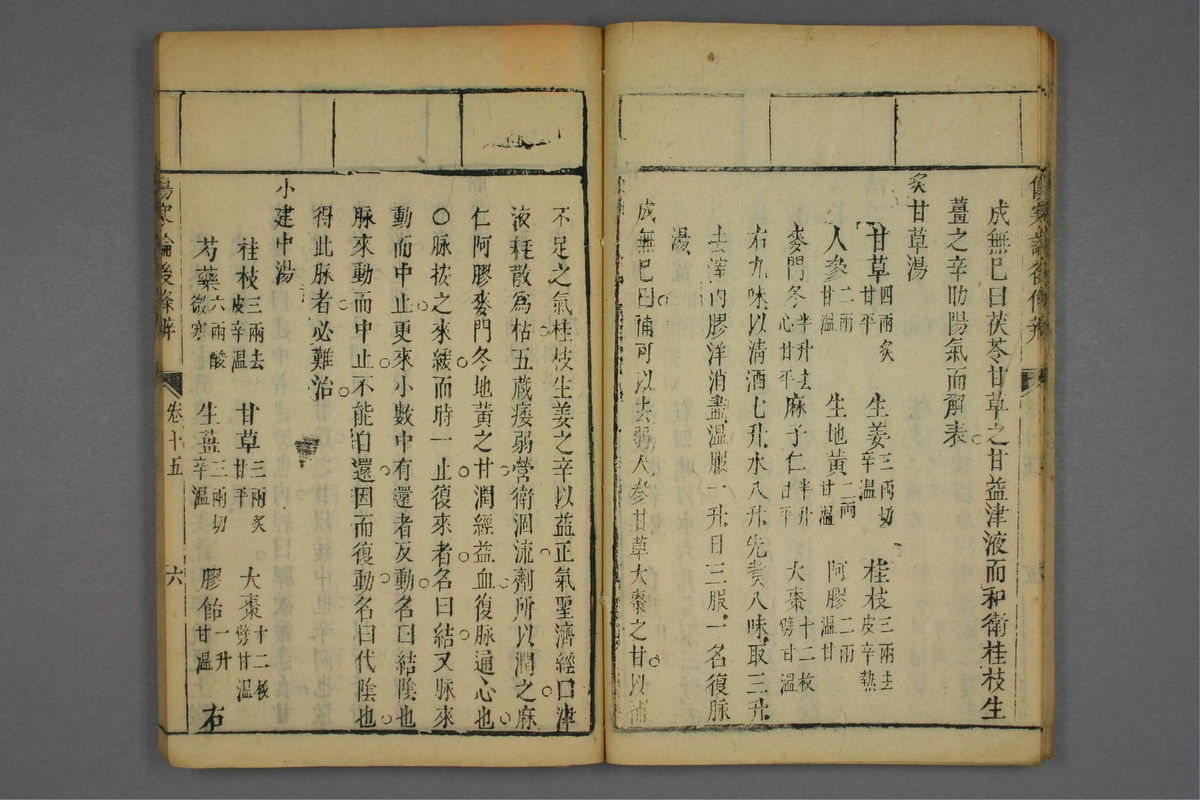 成無巳曰茯苓甘草之甘益津液而和衛桂枝生
薑之辛助陽氣而解表
炙甘草湯
甘草四兩炙甘平 生姜三兩切辛溫 桂枝三兩去皮辛熱
人參二兩甘溫 生地黃二兩甘溫 阿膠二兩溫甘
麥門冬半升去心甘平 麻子仁半升甘平 大棗十二枚劈甘溫
右九味以清酒七升水八升先煑八味取三升
去滓內膠洋消盡溫服一升日三服一名復脉
湯
成無巳曰補可以去弱人參甘草大棗之甘以補
不足之氣桂枝生姜之辛以益正氣聖濟經曰津
液耗散為枯五藏痿弱營衛涸流劑所以潤之麻
仁阿膠麥門冬地黃之甘潤經益血復脉通心也
○脉按之來緩而時一止復來者名曰結又脉來
動而中止更來小數中有還者反動名曰結陰也
脉來動而中止不能自還因而復動名曰代陰也
得此脉者必難治
小建中湯
桂枝三兩去皮辛溫 甘草三兩炙甘平 大棗十二枚劈甘溫
芍藥六兩酸微寒 生薑三兩切辛溫 膠飴一升甘溫 右
傷寒論後條辨 卷十五 六